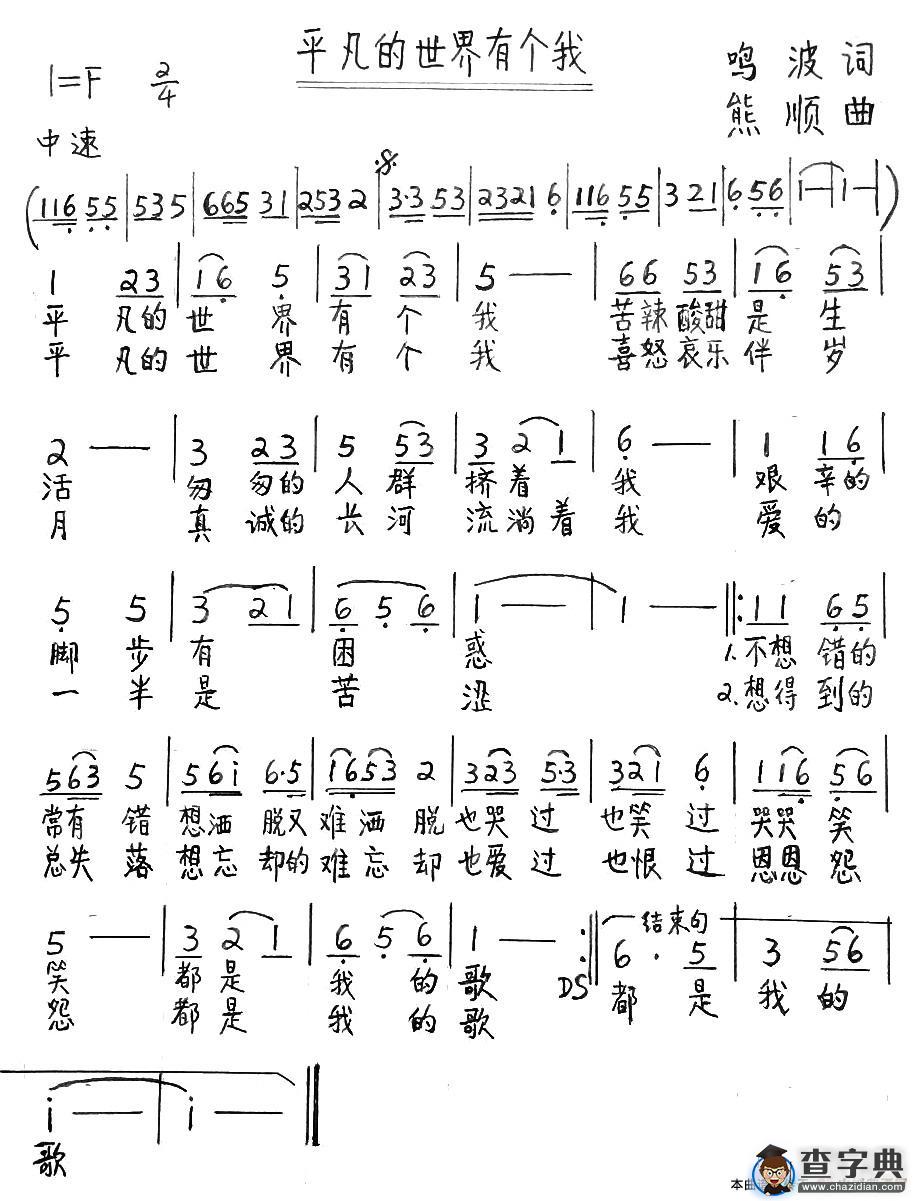 平凡的世界有个我
1=F 2/4
鸣波词
熊顺曲
中速
(116 55|535|665 31|253 2|3·3 53|2321 6|116 55|3 21|6 56|1—|1—|)
1 23|16 5|31 23|5 —|66 53|16 53|
平凡的世界有个我 苦辣酸甜是生
平凡的世界有个我 喜怒哀乐伴岁
2 —|3 23|5 53|3 2 1|6 —|1 16|
活 匆匆的人群挤着我 艰辛的
月 真诚的长河流淌着我 爱的
5 5|3 21|6 5 6|1 —|1 —|:11 65|
脚步有困惑 1.不想错的
一半是苦涩 2.想得到的
563 5|56i 6·5|1653 2|323 5·3|321 6|116 56|
常有错想洒脱又难洒脱也哭过也笑过哭哭笑
总失落想忘却的难忘却也爱过也恨过恩恩怨
5 —|3 2 1|6 5 6|1 — :|结束句 6· 5|3 56|
笑都是我的歌 DS 都是我的
怨都是我的歌
i —|i —‖
歌
本曲
查字典
www.chazidian.com